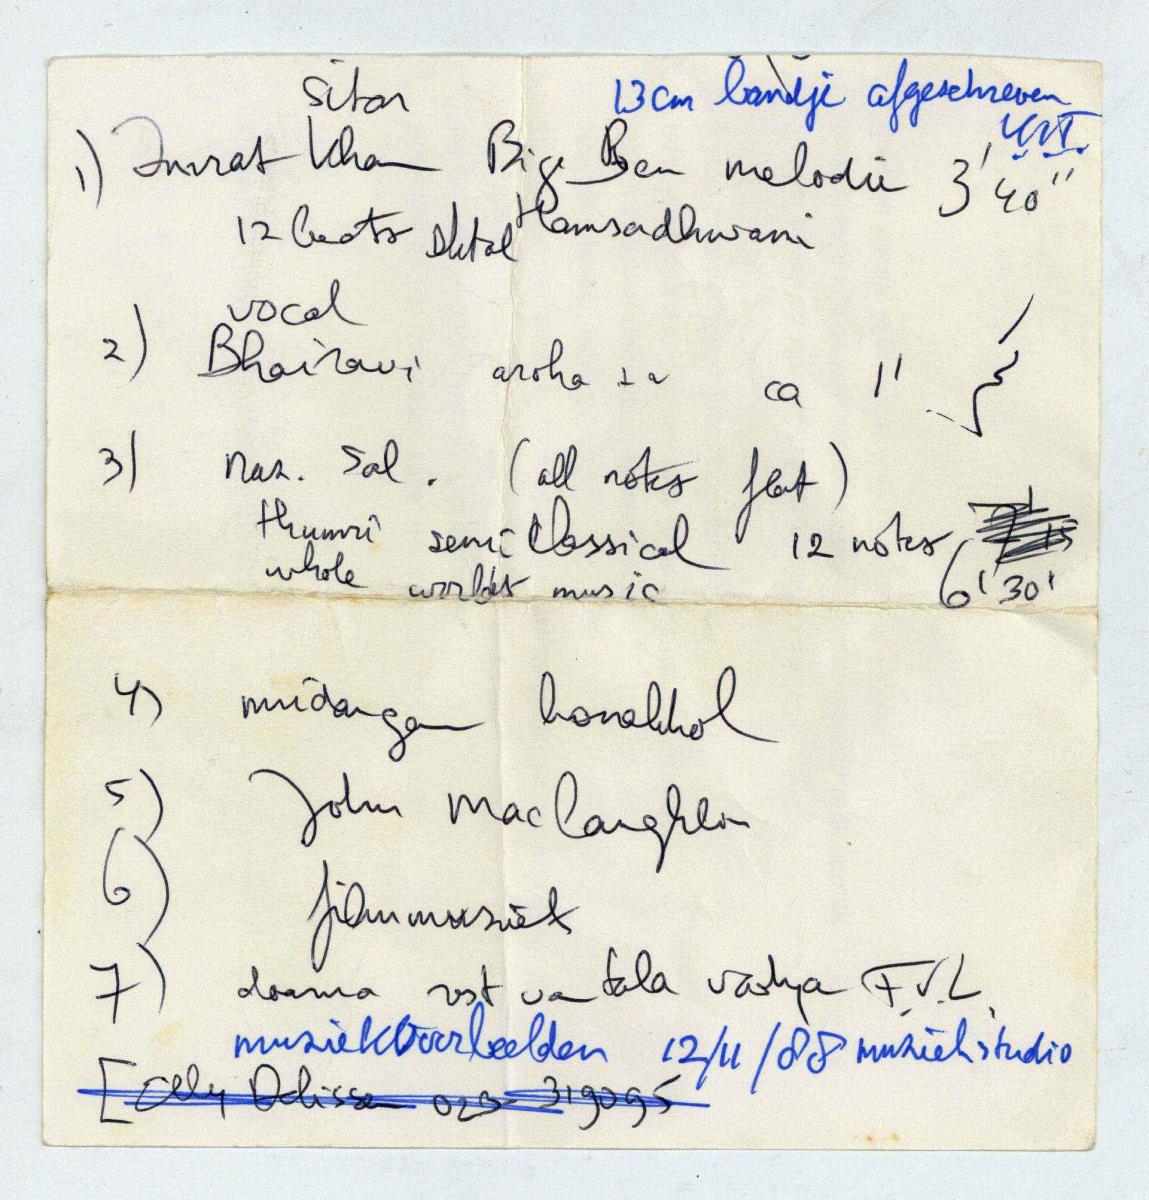 sitar
13 cm bandje afgeschreven
1) Imrat Khan Big Ben melodie 3' 40"
12 beats Hamsadhwani
vocal
2) Bhairavi aroha ca 1'
3) naz. Sal. (all notes flat)
thumri semi classical 12 notes
whole worlds music 6' 30'
4) mridangam konakkol
5) John MacLaughlin
6) filmmuziek
7) drama rest van tala vadya F.V.L.
muziekvoorbeelden 12/11/88 muziekstudio